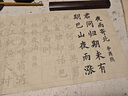 夜雨寄北
李商隐
君问归期未有
期巴山夜雨涨